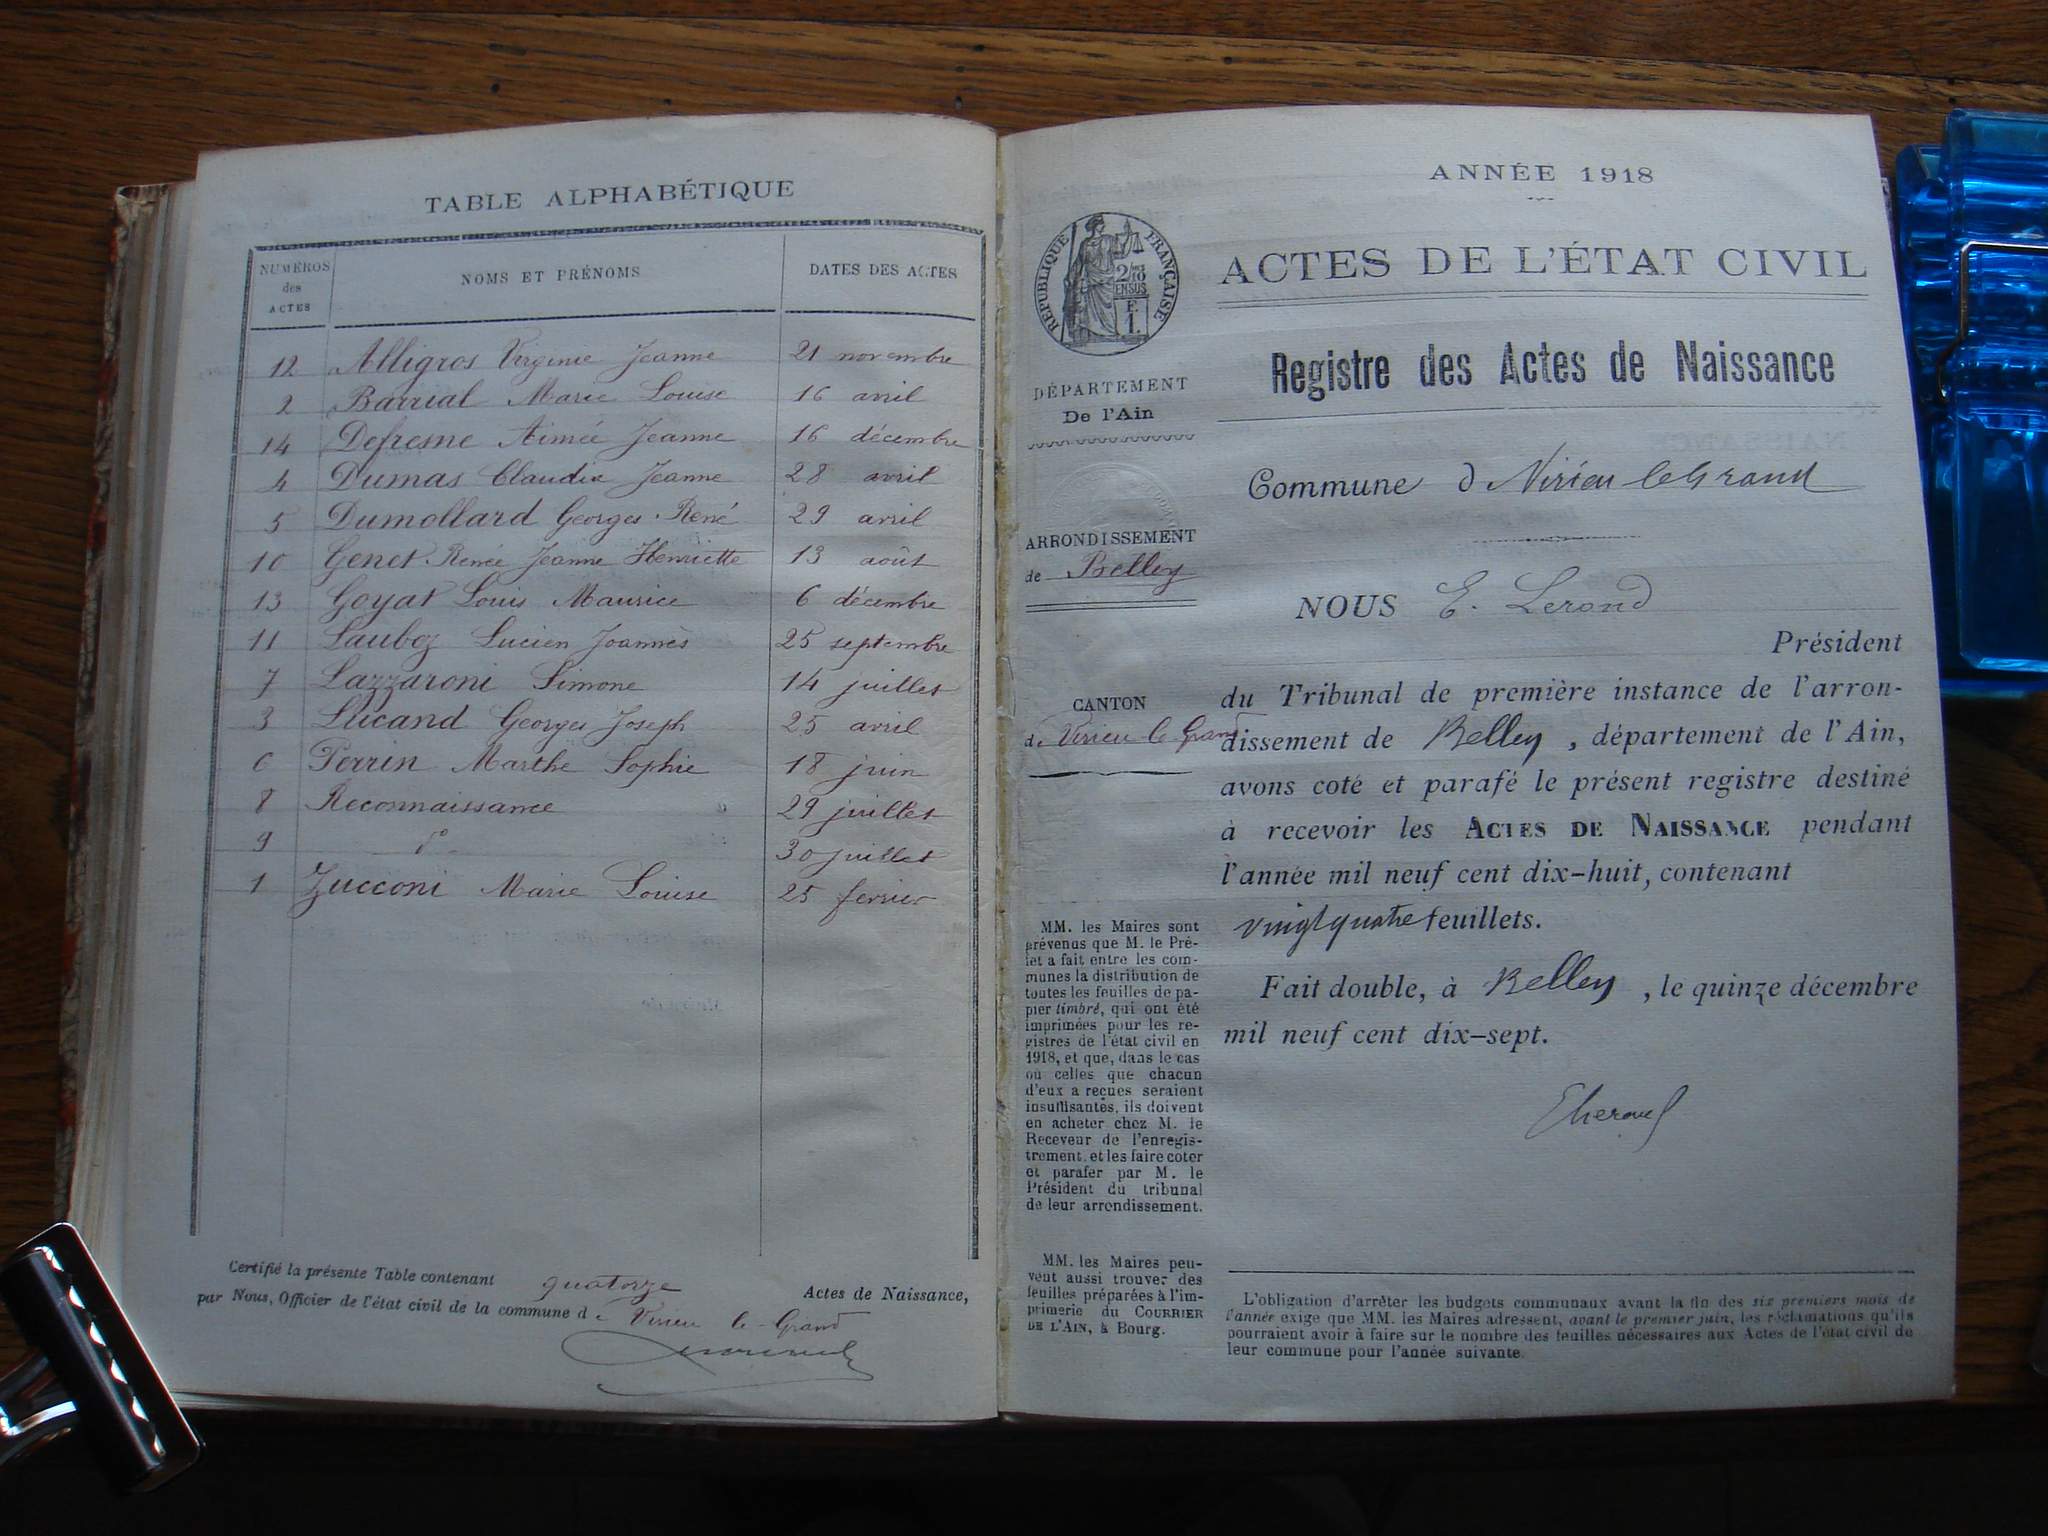 TABLE ALPHABÉTIQUE
NUMÉROS des ACTES NOMS ET PRÉNOMS DATES DES ACTES
12 Alligros Virginie Jeanne 21 novembre
2 Barrial Marie Louise 16 avril
14 Defresne Aimée Jeanne 16 décembre
4 Dumas Claudia Jeanne 28 avril
5 Dumollard Georges René 29 avril
10 Genet Renée Jeanne Henriette 13 août
13 Goyat Louis Maurice 6 décembre
11 Lucien Joannès 25 septembre
7 Lazzaroni Simone 14 juillet
3 Lucand Georges Joseph 25 avril
6 Perrin Marthe Sophie 18 juin
8 Reconnaissance 29 juillet
9 d° 30 juillet
1 Zucconi Marie Louise 25 fevrier
Certifié la présente Table contenant quatorze Actes de Naissance,
par Nous, Officier de l'état civil de la commune de Virieu le-Grand
ANNÉE 1918
RÉPUBLIQUE FRANÇAISE
ACTES DE L'ÉTAT CIVIL
Registre des Actes de Naissance
DÉPARTEMENT
De l'Ain
Commune d Virieu le Grand
ARRONDISSEMENT
de Belley
NOUS E.
Président
CANTON
de Virieu le Grand
du Tribunal de première instance de l'arron-
dissement de Belley, département de l'Ain,
avons coté et parafé le présent registre destiné
à recevoir les ACTES DE NAISSANCE pendant
l'année mil neuf cent dix-huit, contenant
vingt quatre feuillets.
Fait double, à Belley, le quinze décembre
mil neuf cent dix-sept.
MM. les Maires sont
prévenus que M. le Pré-
fet a fait entre les com-
munes la distribution de
toutes les feuilles de pa-
pier timbré, qui ont été
imprimées pour les re-
gistres de l'état civil en
1918, et que, dans le cas
où celles que chacun
d'eux a reçues seraient
insuffisantes, ils doivent
en acheter chez M. le
Receveur de l'enregis-
trement, et les faire coter
et parafer par M. le
Président du tribunal
de leur arrondissement.
MM. les Maires peu-
vent aussi trouver des
feuilles préparées à l'im-
primerie du COURRIER
DE L'AIN, à Bourg.
L'obligation d'arrêter les budgets communaux avant la fin des six premiers mois de
l'année exige que MM. les Maires adressent, avant le premier juin, les réclamations qu'ils
pourraient avoir à faire sur le nombre des feuilles nécessaires aux Actes de l'état civil de
leur commune pour l'année suivante.